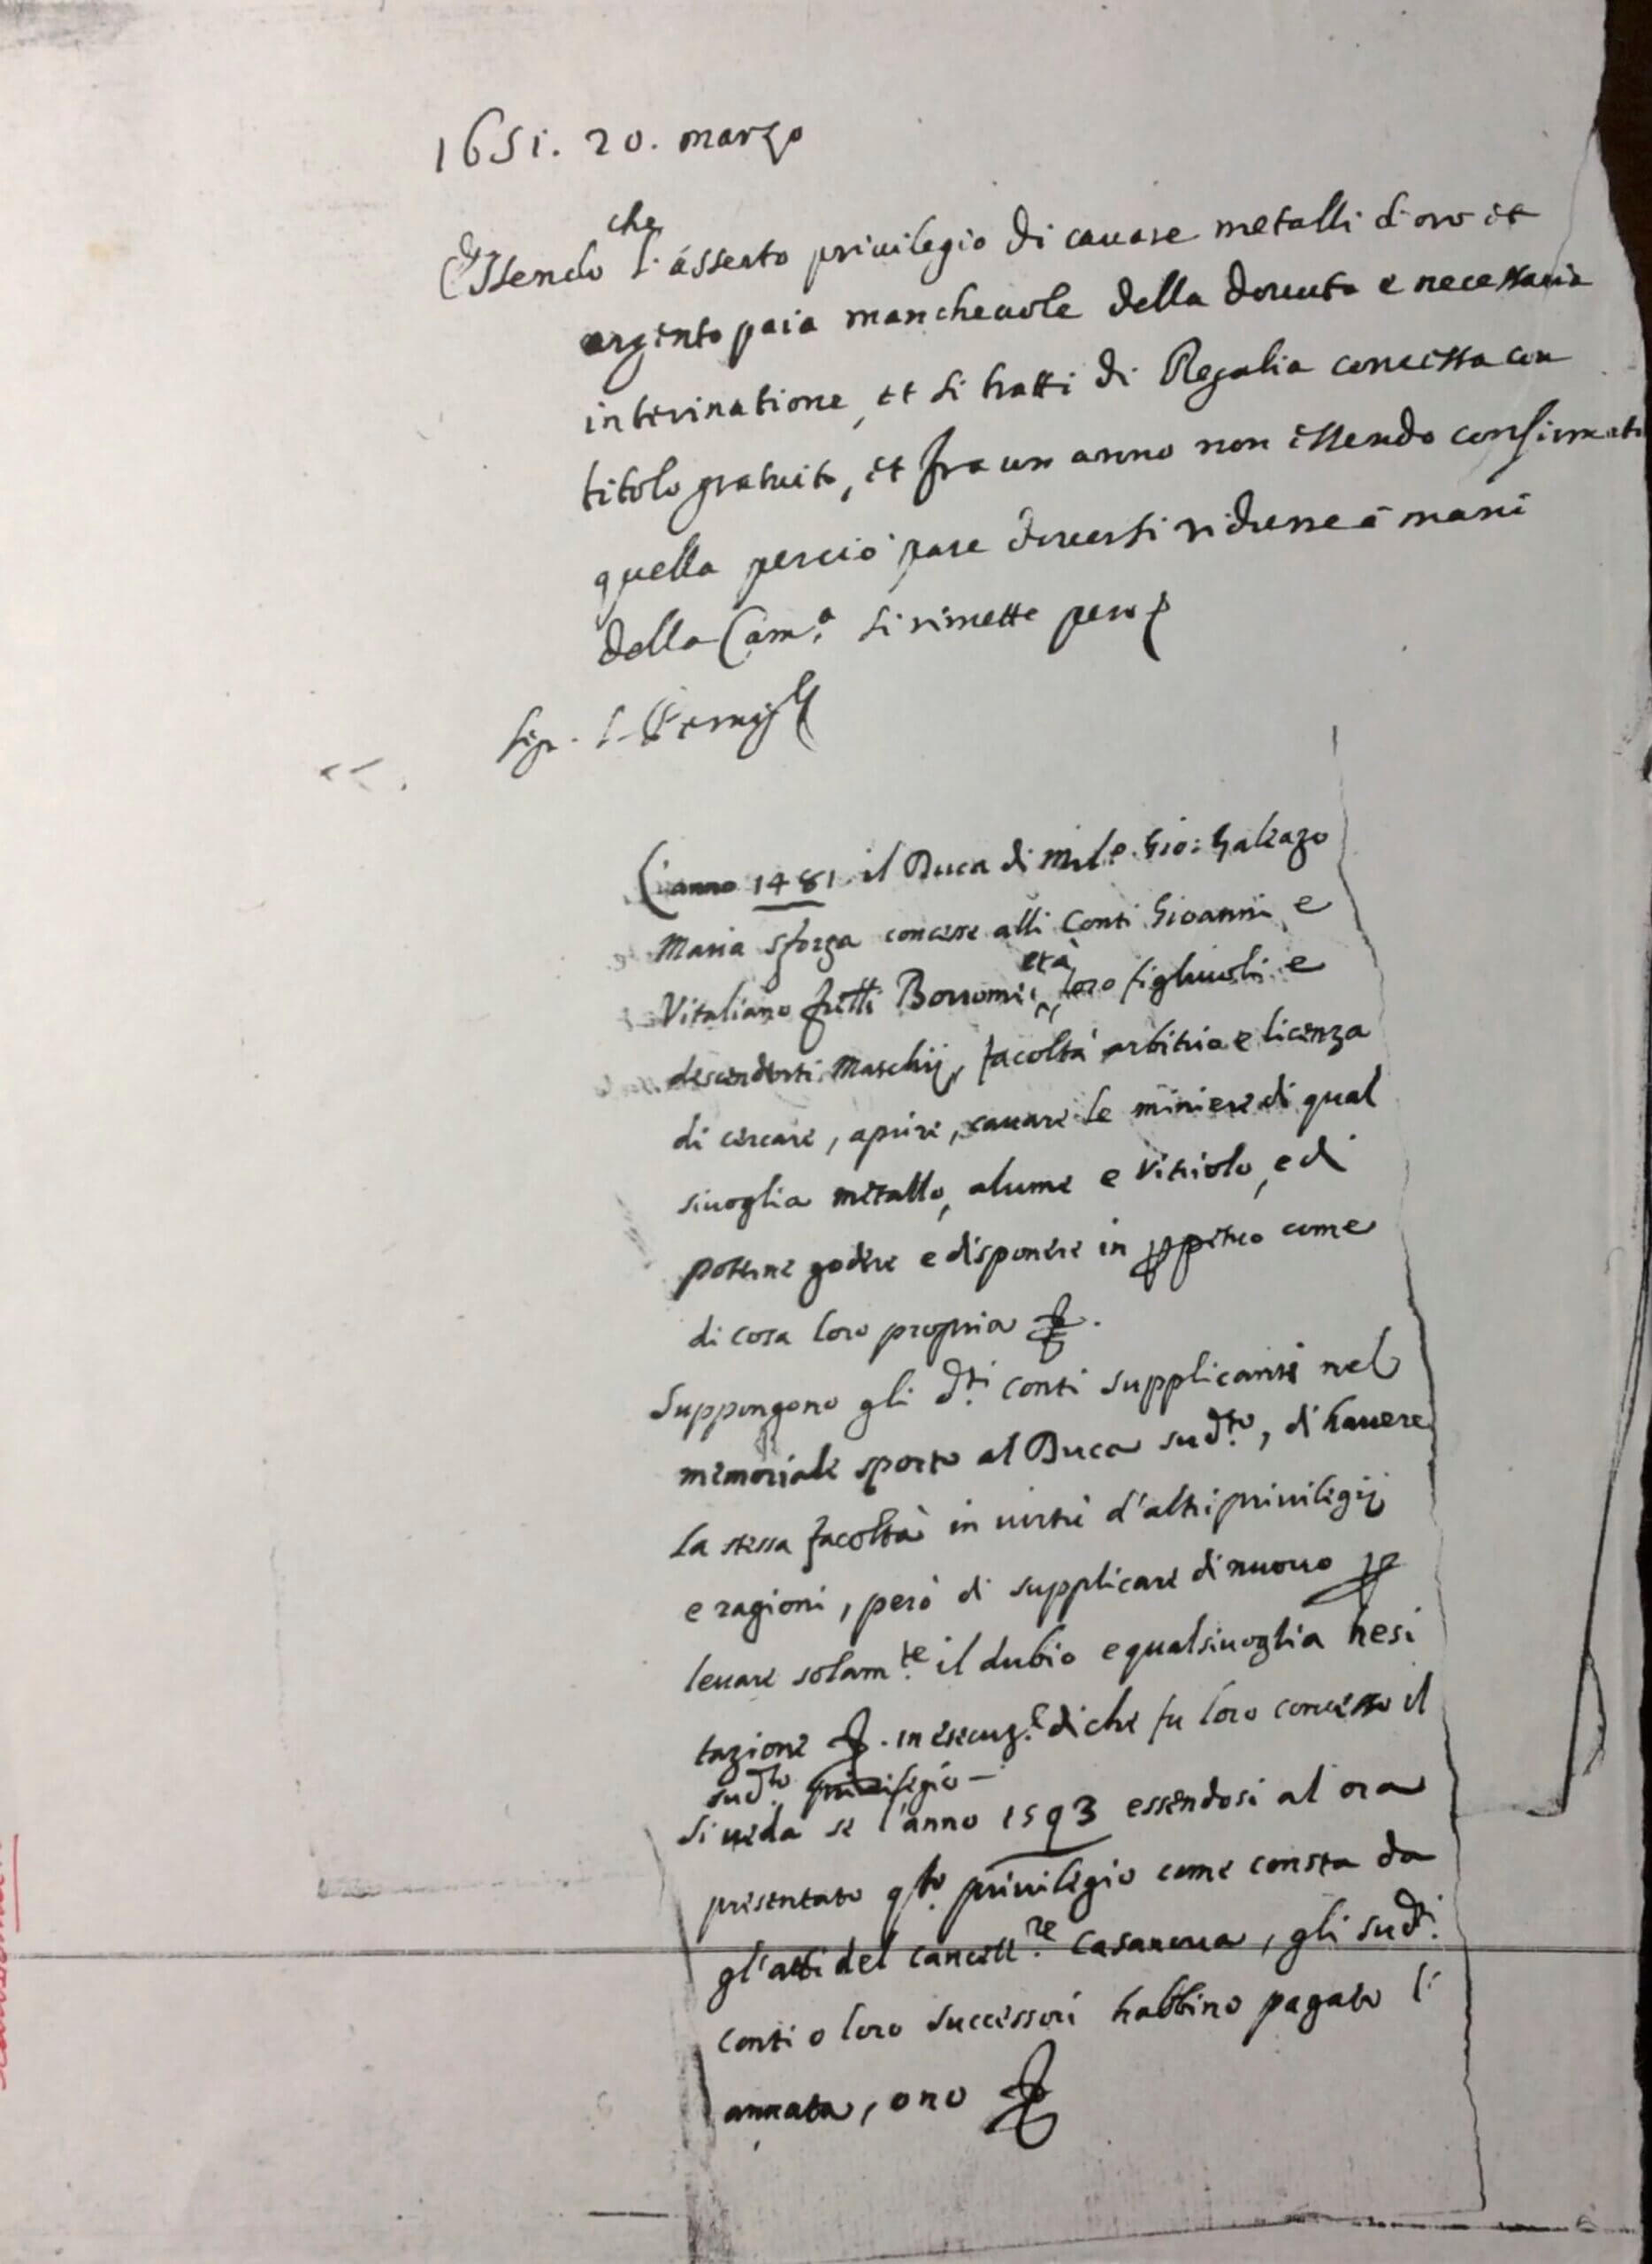 1651. 20. marzo
che
Essendo l'asserto privilegio di cauare metalli d'oro et
argento paia mancheuole della douuta e necessaria
interinatione, et si tratti di Regalia concessa con
titolo gratuito, et fra un anno non essendo confirmata
quella perciò pare douersi ridurre à mani
della Cam.a si rimette però
Sig.
L'anno 1481 il Duca di Mil.o Gio: Galeazo
Maria Sforza concesse alli Conti Gioanni e
età
Vitaliano fratti Borromei, loro figliuoli e
descendenti Maschij, facoltà arbitrio e licenza
di cercare, aprire, cauare le miniere di qual
siuoglia metallo, alume e Vitriolo, e di
poterne godere e disponere in ppetuo come
di cosa loro propria
Suppongono gli d.ti conti supplicanti nel
memoriale sporto al Duca sud.to, di hauere
la stessa facoltà in uirtù d'altri priuilegij
e ragioni, però di supplicare di nuouo p
leuare solam.te il dubio e qualsiuoglia hesi
tazione . in esecuz.e di che fu loro concesso il
sud.to priuilegio —
Si ueda se l'anno 1593 essendosi al ora
presentato q.to priuilegio come consta da
gl'atti del cancell.re Casanoua, gli sud.ti
conti o loro successori habbino pagato l'
annata, o no